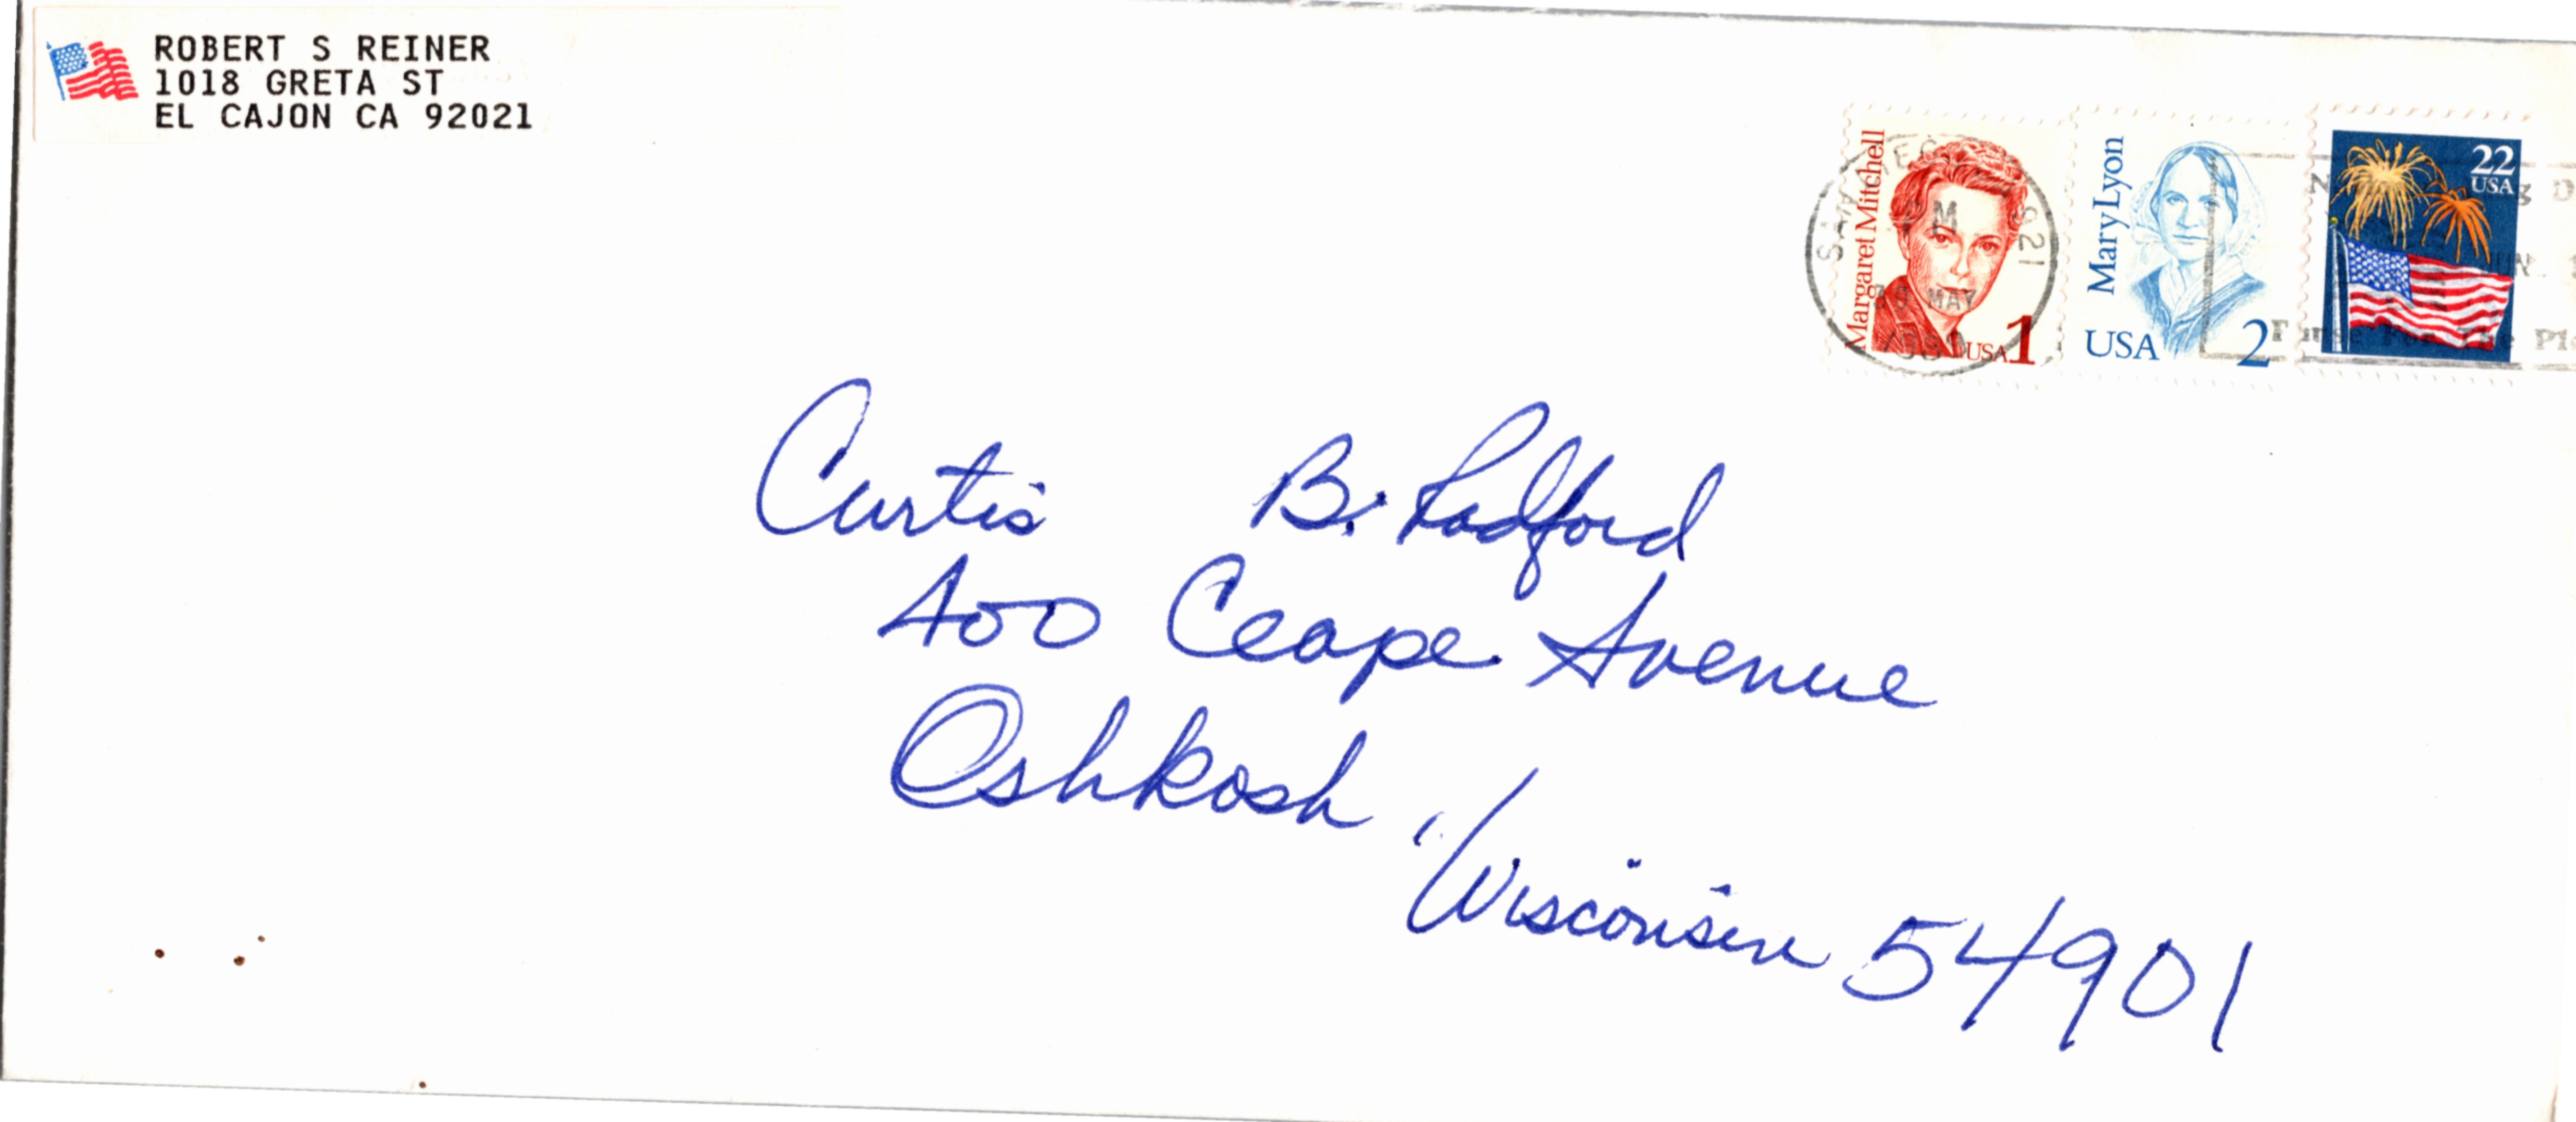 ROBERT S REINER
1018 GRETA ST
EL CAJON CA 92021
Margaret Mitchell
USA 1
Mary Lyon
USA 2
22
USA
SAN
921
30 MAY
Curtis B. Radford
400 Ceape Avenue
Oshkosh, Wisconsin 54901